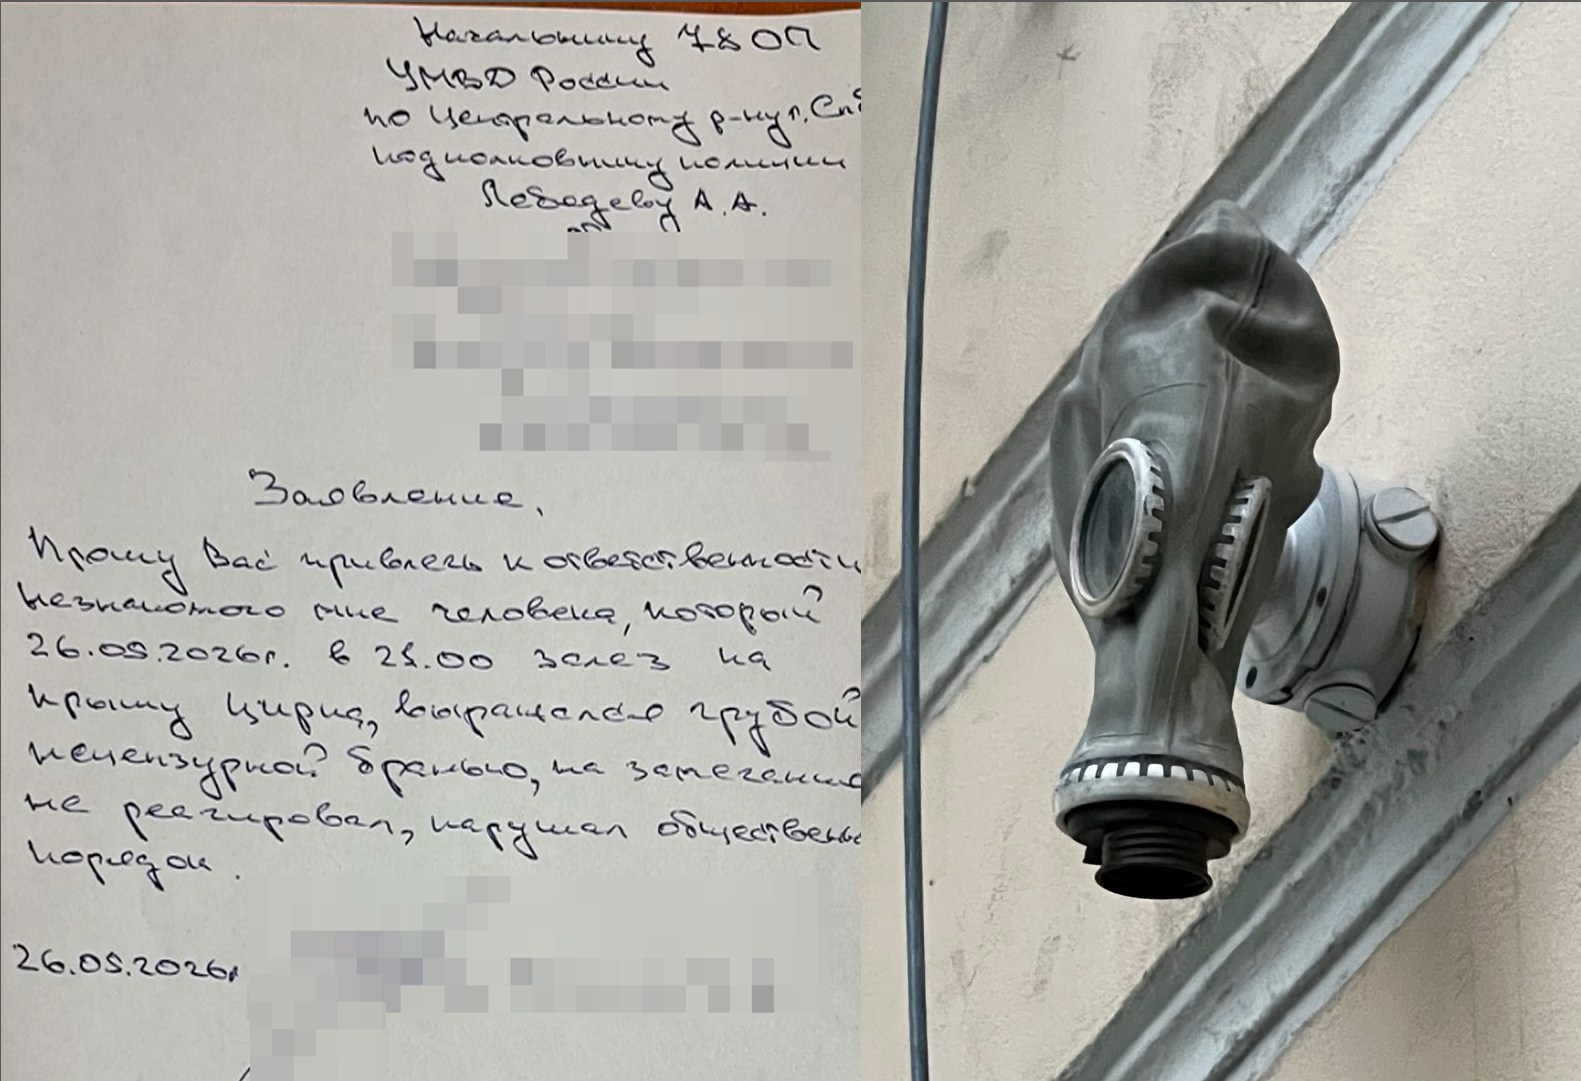 Начальнику 78 ОП
УМВД России
по Центральному р-ну г. СПб
подполковнику полиции
Лебедеву А.А.
Заявление.
Прошу Вас привлечь к ответственности
незнакомого мне человека, который
26.05.2026г. в 21.00 залез на
крышу цирка, выражался грубой
нецензурной бранью, на замечание
не реагировал, нарушал обществен
порядок.
26.05.2026г